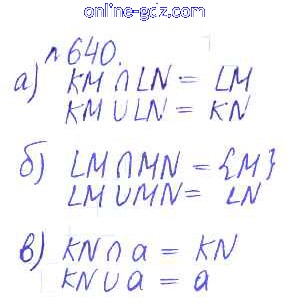 online-gdz.com
№640.
а) KM ∩ LN = LM
KM ∪ LN = KN
б) LM ∩ MN = {M}
LM ∪ MN = LN
в) KN ∩ a = KN
KN ∪ a = a